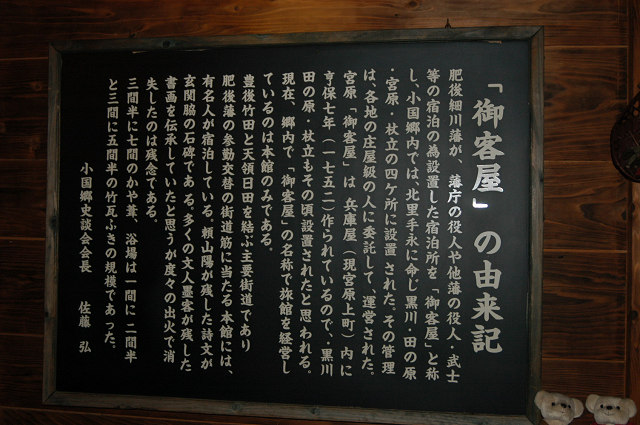 「御客屋」の由来記
肥後細川藩が、藩庁の役人や他藩の役人・武士
等の宿泊の為設置した宿泊所を「御客屋」と称
し、小国郷内では、北里手永に命じ黒川・田の原
・宮原・杖立の四ケ所に設置された。その管理
は、各地の庄屋級の人に委託して、運営された。
宮原「御客屋」は兵庫屋(現宮原上町)内に
享保七年(一七五二)作られているので、黒川
田の原・杖立もその頃設置されたと思われる。
現在、郷内で「御客屋」の名称で旅館を経営し
ているのは本館のみである。
豊後竹田と天領日田を結ぶ主要街道であり
肥後藩の参勤交替の街道筋に当たる本館には、
有名人が宿泊している。頼山陽が残した詩文が
玄関脇の石碑である。多くの文人墨客が残した
書画を伝承していたと思うが度々の出火で消
失したのは残念である。
三間半に七間のかや葺、浴場は一間に二間半
と三間に五間半の竹瓦ぶきの規模であった。
小国郷史談会会長 佐藤 弘